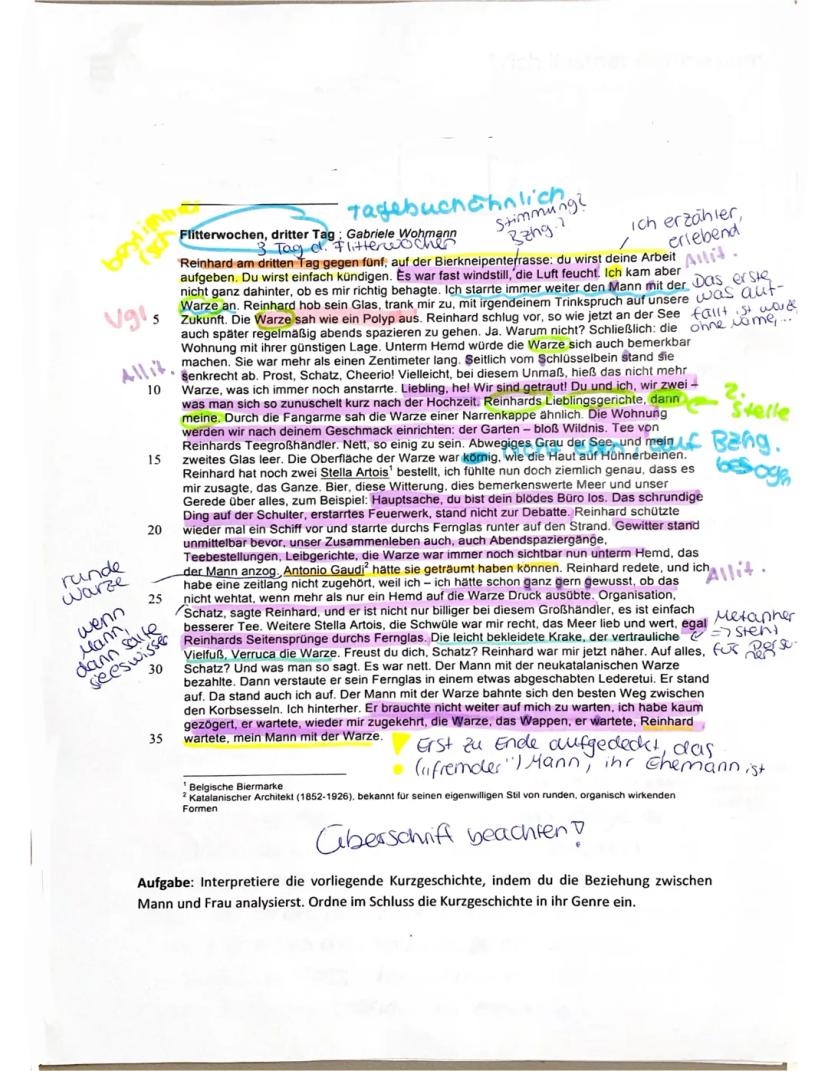 Tagebuchähnlich
bestimmerisch
Stimmung?
Bzhg.?
ich erzähler,
erlebend
Flitterwochen, dritter Tag ; Gabriele Wohmann
3 Tag d. Flitterwochen
Reinhard am dritten Tag gegen fünf, auf der Bierkneipenterrasse: du wirst deine Arbeit
Allit.
aufgeben. Du wirst einfach kündigen. Es war fast windstill, die Luft feucht. Ich kam aber
nicht ganz dahinter, ob es mir richtig behagte. Ich starrte immer weiter den Mann mit der
Das erste
was auf-
fällt ist warze
ohne name,...
Warze an. Reinhard hob sein Glas, trank mir zu, mit irgendeinem Trinkspruch auf unsere
Vgl
5 Zukunft. Die Warze sah wie ein Polyp aus. Reinhard schlug vor, so wie jetzt an der See
auch später regelmäßig abends spazieren zu gehen. Ja. Warum nicht? Schließlich: die
Wohnung mit ihrer günstigen Lage. Unterm Hemd würde die Warze sich auch bemerkbar
machen. Sie war mehr als einen Zentimeter lang. Seitlich vom Schlüsselbein stand sie
Allit.
senkrecht ab. Prost, Schatz, Cheerio! Vielleicht, bei diesem Unmaß, hieß das nicht mehr
10 Warze, was ich immer noch anstarrte. Liebling, he! Wir sind getraut! Du und ich, wir zwei –
was man sich so zunuschelt kurz nach der Hochzeit. Reinhards Lieblingsgerichte, dann
2.
Stelle
meine. Durch die Fangarme sah die Warze einer Narrenkappe ähnlich. Die Wohnung
werden wir nach deinem Geschmack einrichten: der Garten – bloß Wildnis. Tee von
Reinhards Teegroßhändler. Nett, so einig zu sein. Abwegiges Grau der See, und mein
auf Bzhg.
bezogen
15 zweites Glas leer. Die Oberfläche der Warze war körnig, wie die Haut auf Hühnerbeinen.
Reinhard hat noch zwei Stella Artois¹ bestellt, ich fühlte nun doch ziemlich genau, dass es
mir zusagte, das Ganze. Bier, diese Witterung, dies bemerkenswerte Meer und unser
Gerede über alles, zum Beispiel: Hauptsache, du bist dein blödes Büro los. Das schrundige
Ding auf der Schulter, erstarrtes Feuerwerk, stand nicht zur Debatte. Reinhard schützte
20 wieder mal ein Schiff vor und starrte durchs Fernglas runter auf den Strand. Gewitter stand
unmittelbar bevor, unser Zusammenleben auch, auch Abendspaziergänge,
Teebestellungen, Leibgerichte, die Warze war immer noch sichtbar nun unterm Hemd, das
runde
Warze
der Mann anzog. Antonio Gaudi² hätte sie geträumt haben können. Reinhard redete, und ich
habe eine zeitlang nicht zugehört, weil ich – ich hätte schon ganz gern gewusst, ob das
Allit.
25 nicht wehtat, wenn mehr als nur ein Hemd auf die Warze Druck ausübte. Organisation,
Schatz, sagte Reinhard, und er ist nicht nur billiger bei diesem Großhändler, es ist einfach
wenn
Mann,
dann sollte
sie es wissen
besserer Tee. Weitere Stella Artois, die Schwüle war mir recht, das Meer lieb und wert, egal
Reinhards Seitensprünge durchs Fernglas. Die leicht bekleidete Krake, der vertrauliche
Metapher
=> steht
für Person
Vielfuß, Verruca die Warze. Freust du dich, Schatz? Reinhard war mir jetzt näher. Auf alles,
30 Schatz? Und was man so sagt. Es war nett. Der Mann mit der neukatalanischen Warze
bezahlte. Dann verstaute er sein Fernglas in einem etwas abgeschabten Lederetui. Er stand
auf. Da stand auch ich auf. Der Mann mit der Warze bahnte sich den besten Weg zwischen
den Korbsesseln. Ich hinterher. Er brauchte nicht weiter auf mich zu warten, ich habe kaum
gezögert, er wartete, wieder mir zugekehrt, die Warze, das Wappen, er wartete, Reinhard
35 wartete, mein Mann mit der Warze.
! Erst zu Ende aufgedeckt, das
("fremder") Mann, ihr Ehemann ist
¹ Belgische Biermarke
² Katalanischer Architekt (1852-1926), bekannt für seinen eigenwilligen Stil von runden, organisch wirkenden
Formen
Überschrift beachten!
Aufgabe: Interpretiere die vorliegende Kurzgeschichte, indem du die Beziehung zwischen
Mann und Frau analysierst. Ordne im Schluss die Kurzgeschichte in ihr Genre ein.